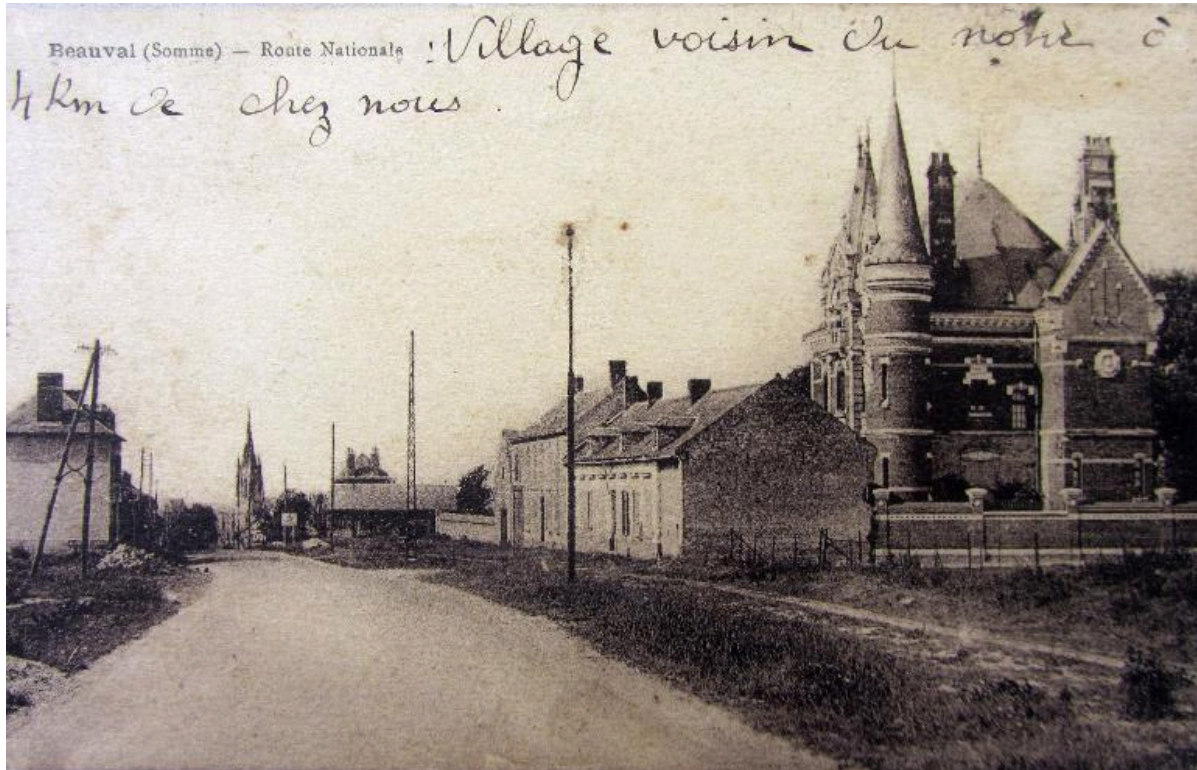 Beauval (Somme) — Route Nationale : Village voisin du notre à
4 Km de chez nous.